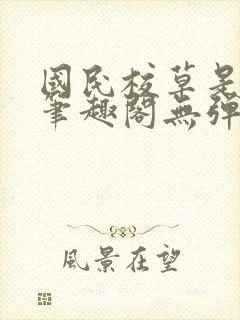 國民校草是
筆趣閣無彈
風景在望